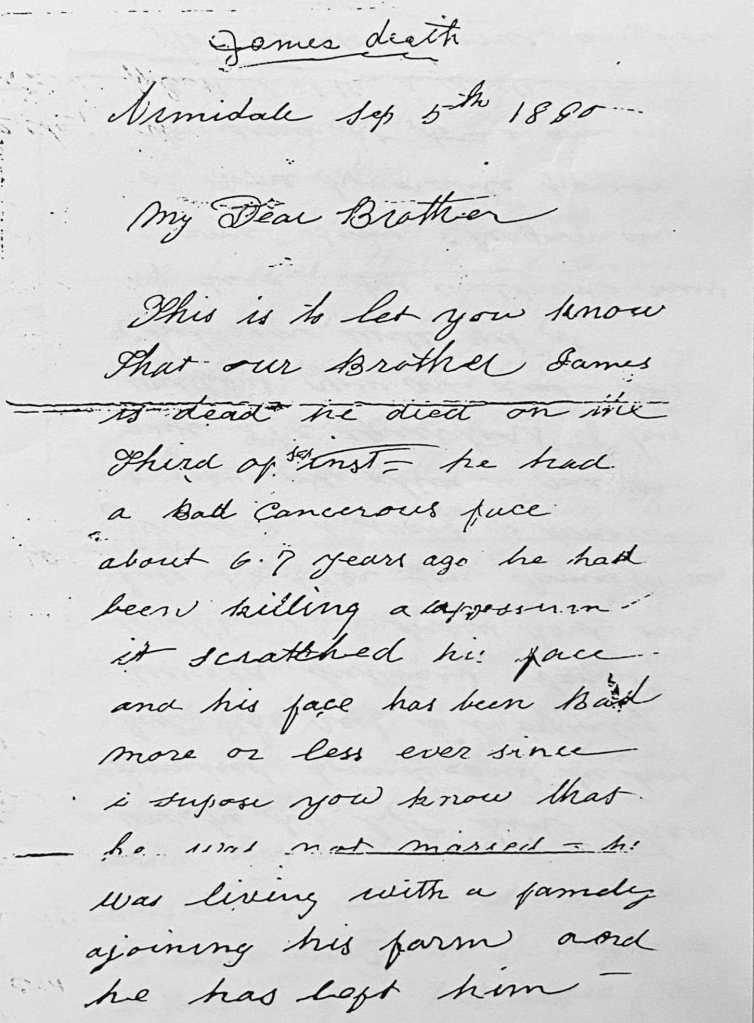 James death
Armidale Sep 5th 1890
My Dear Brother
This is to let you know
that our Brother James
is dead he died on the
Third of Sep inst = he had
a Bad Cancerous face
about 6.7 years ago he had
been killing a oppossum
it scratched his face
and his face has been Bad
more or less ever since
i supose you know that
he was not maried = he
was living with a family
ajoining his farm and
he has left him